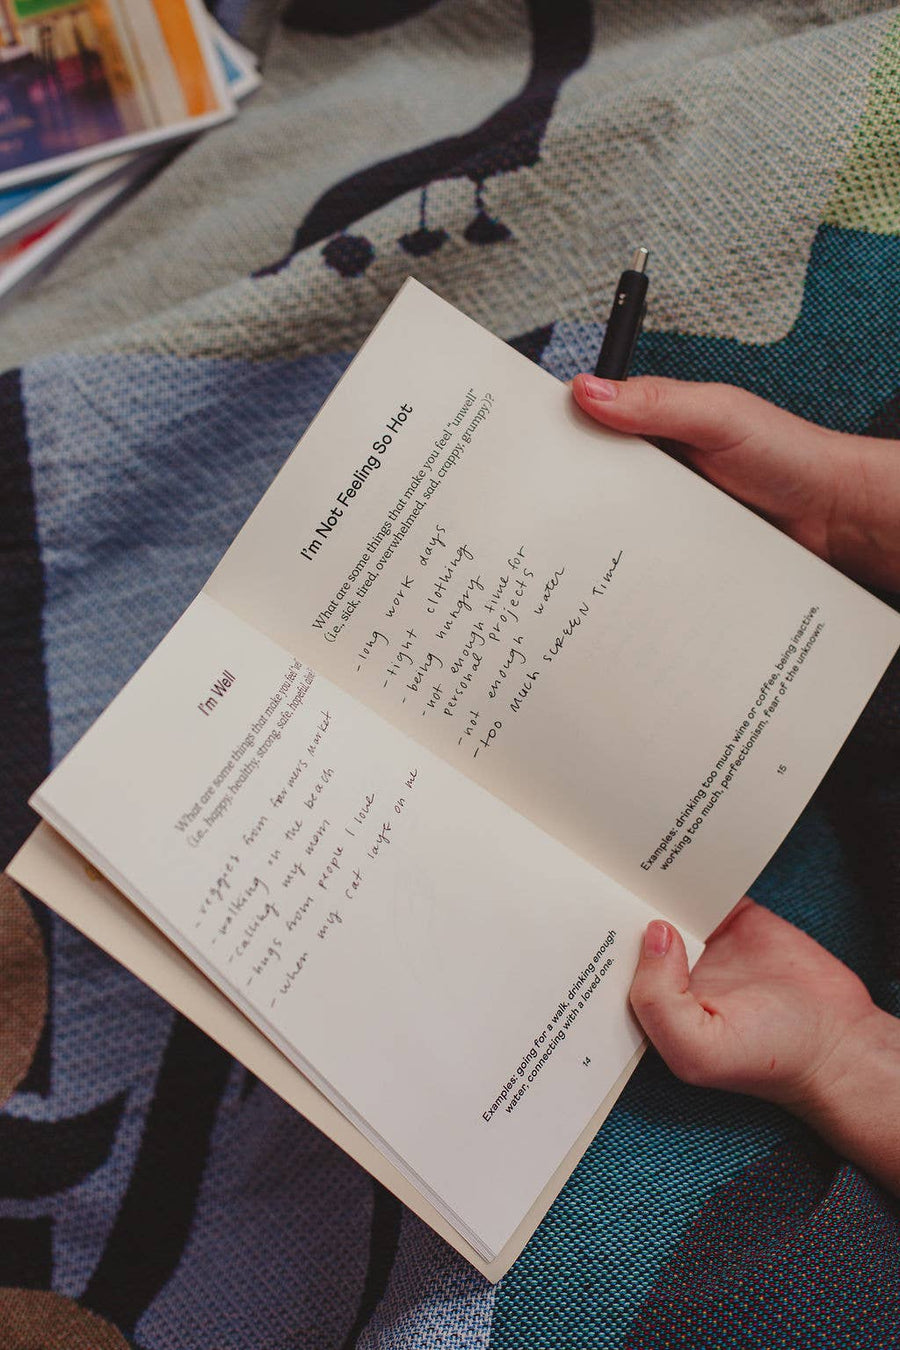 I'm Well
What are some things that make you feel
(i.e., happy, healthy, strong, safe, hopeful,
- veggies from farmers market
- walking on the beach
- calling my mom
- hugs from people I love
- when my cat lays on me
Examples: going for a walk, drinking enough
water, connecting with a loved one.
14
I'm Not Feeling So Hot
What are some things that make you feel "unwell"
(i.e., sick, tired, overwhelmed, sad, crappy, grumpy,)?
- long work days
- tight clothing
- being hungry
- not enough time for
personal projects
- not enough water
- too much screen time
Examples: drinking too much wine or coffee, being inactive,
working too much, perfectionism, fear of the unknown.
15